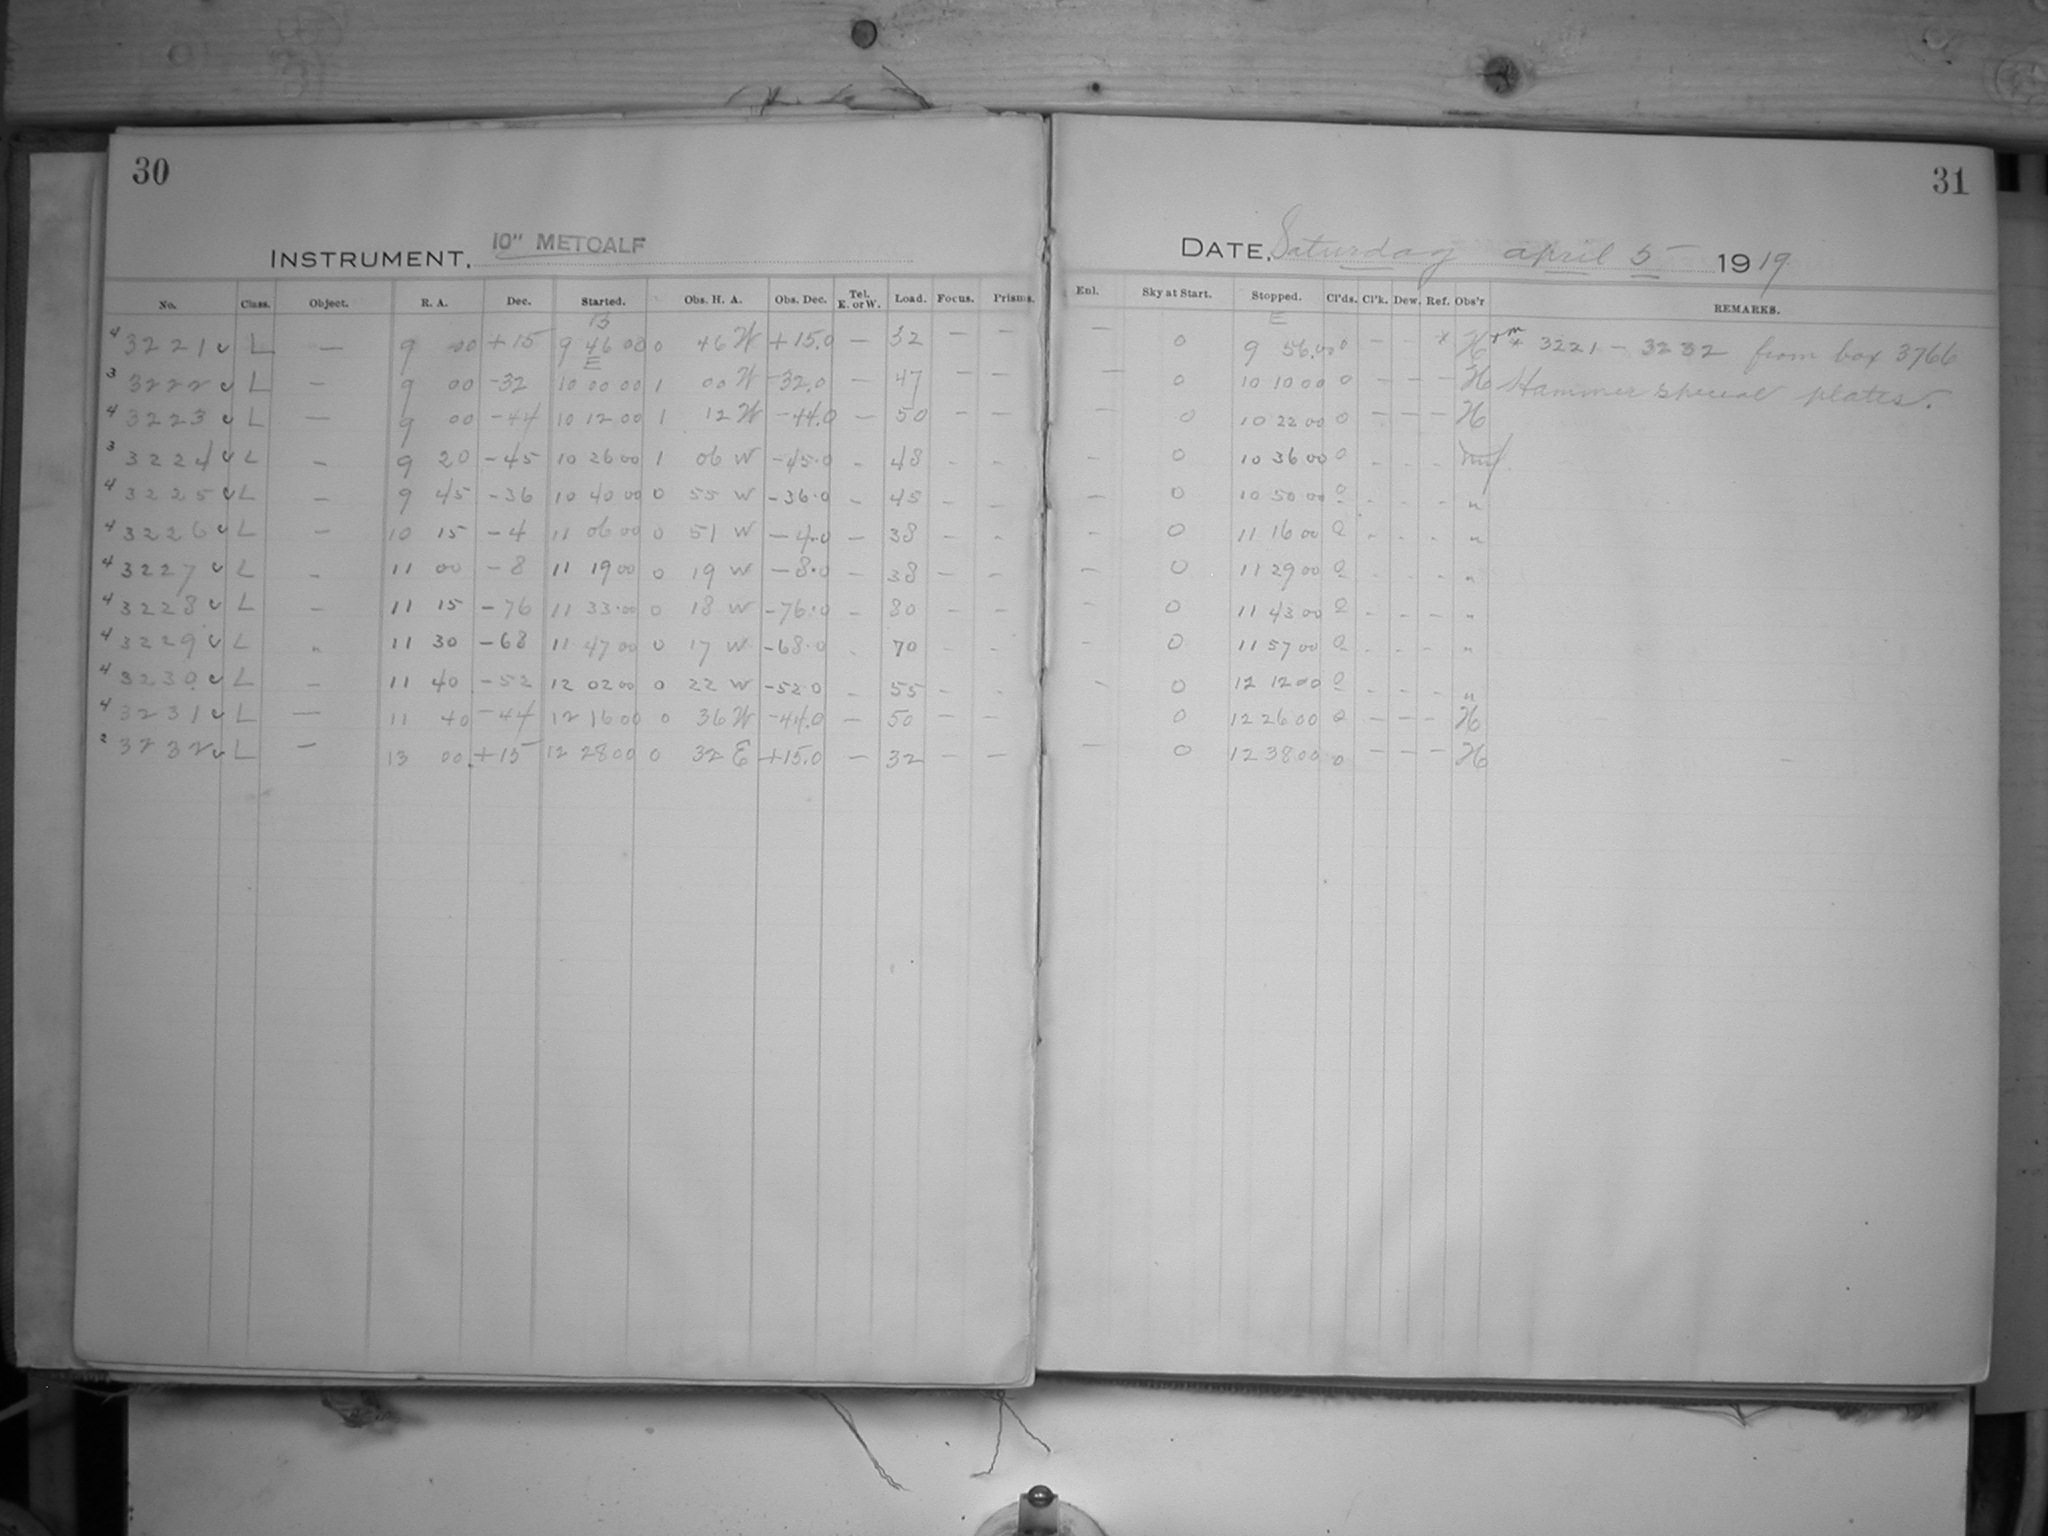 30
31
INSTRUMENT, 10" METCALF
DATE, Saturday april 5 1919
No. Class. Object. R. A. Dec. Started. Obs. H. A. Obs. Dec. Tel. E. or W. Load. Focus. Prisms. Enl. Sky at Start. Stopped. Cl'ds. Cl'k. Dew. Ref. Obs'r REMARKS.
E
4 3221 L — 9 00 +15 9 46 00 0 46 W +15.0 — 32 — — — 0 9 56.00 0 - - * H * 3221 - 3232 from box 3766
E
3 3222 L — 9 00 -32 10 00 00 1 00 W -32.0 — 47 — — — 0 10 10 00 0 - - - H Hammer special plates.
4 3223 L — 9 00 -44 10 12 00 1 12 W -44.0 — 50 - — — 0 10 22 00 0 - - - H
3 3224 L - 9 20 -45 10 26 00 1 06 W -45.0 - 48 - - - 0 10 36 00 0 - - -
4 3225 L - 9 45 -36 10 40 00 0 55 W -36.0 - 45 - - - 0 10 50 00 0 - - - "
4 3226 L - 10 15 -4 11 06 00 0 51 W -4.0 - 38 - - - 0 11 16 00 0 - - - "
4 3227 L - 11 00 -8 11 19 00 0 19 W -8.0 - 38 - - - 0 11 29 00 0 - - - "
4 3228 L - 11 15 -76 11 33.00 0 18 W -76.0 - 80 - - - 0 11 43 00 0 - - - "
4 3229 L " 11 30 -68 11 47 00 0 17 W -68.0 - 70 - - - 0 11 57 00 0 - - - "
4 3230 L - 11 40 -52 12 02 00 0 22 W -52.0 - 55 - - - 0 12 12 00 0 - - - "
4 3231 L — 11 40 -44 12 16 00 0 36 W -44.0 — 50 — — 0 12 26 00 0 - - - H
2 3232 L — 13 00 +15 12 28 00 0 32 E +15.0 — 32 - — — 0 12 38 00 0 - - - H